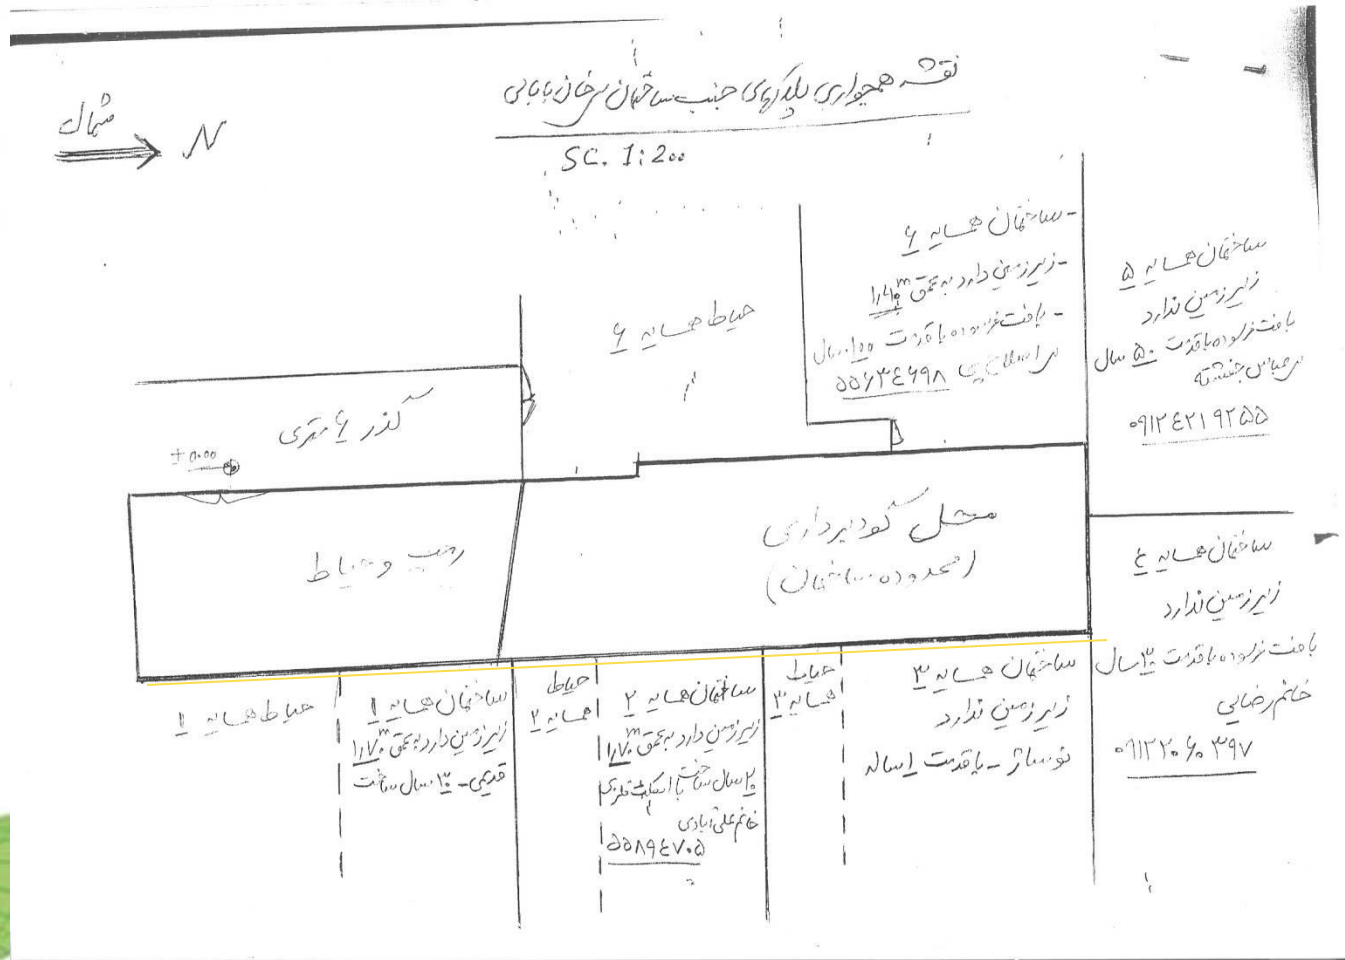 نقشه همجواری پلاکهای جنب ساختمان خان بابائی
SC. 1:200
شمال
N
- ساختمان همسایه ۶
- زیرزمین دارد به عمق ۱٫۴۰m
- بافت فرسوده با قدمت ۱۰۰ سال
۵۵۶۳۴۶۹۸
ساختمان همسایه ۵
زیرزمین ندارد
بافت فرسوده با قدمت ۵۰ سال
۰۹۱۲۴۲۱۹۲۵۵
حیاط همسایه ۶
گذر ۶ متری
± 0.00
محل گودبرداری
(محدوده ساختمان)
رمپ و حیاط
ساختمان همسایه ۴
زیرزمین ندارد
بافت فرسوده با قدمت ۳۰ سال
خانم رضایی
۰۹۱۲۲۰۶۰۳۹۷
حیاط همسایه ۱
ساختمان همسایه ۱
زیرزمین دارد به عمق ۱٫۷۰m
قدیمی - ۳۰ سال ساخت
حیاط
همسایه ۲
ساختمان همسایه ۲
زیرزمین دارد به عمق ۱٫۷۰m
۲۰ سال ساخت با اسکلت فلزی
خانم علی آبادی
۵۵۸۹۴۷۰۵
حیاط
همسایه ۳
ساختمان همسایه ۳
زیرزمین ندارد
نوساز - با قدمت ۱ ساله